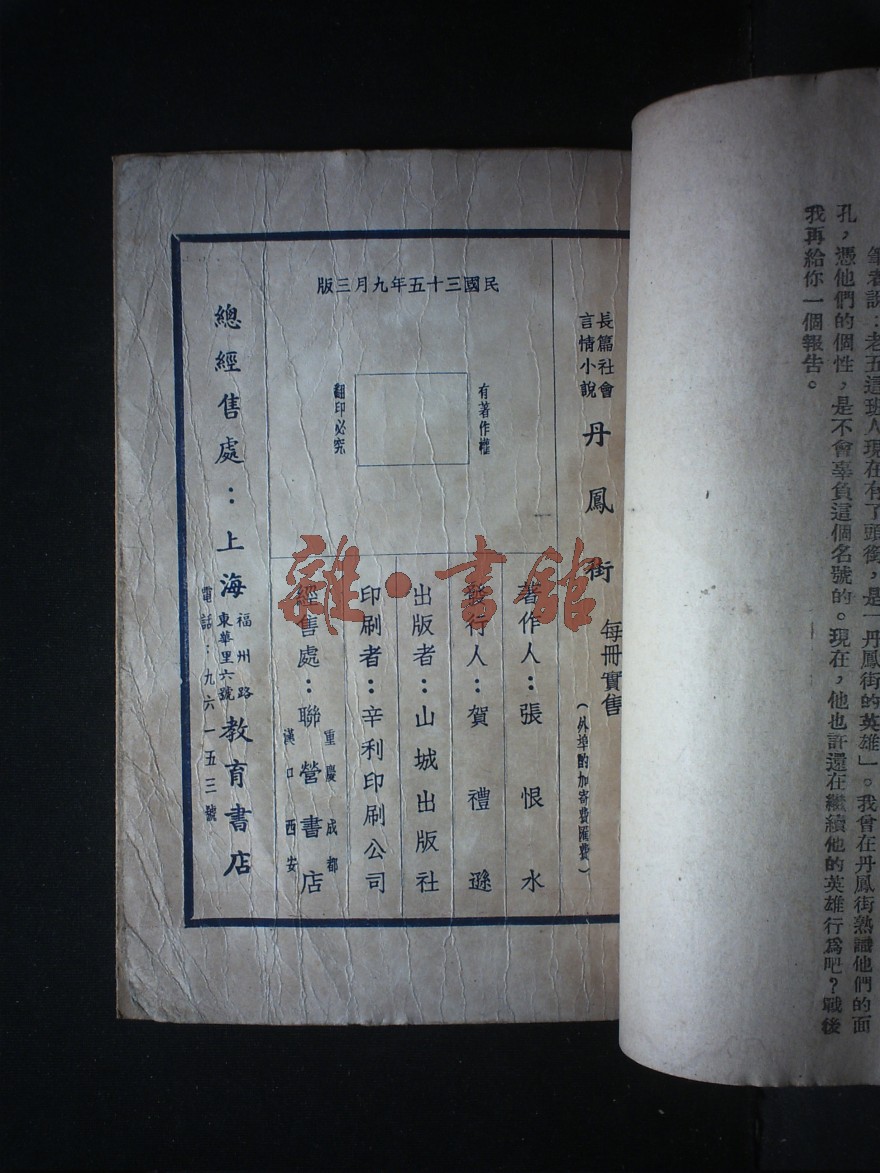 筆者說：老五這班人現在有了頭銜，是「丹鳳街的英雄」。我曾在丹鳳街熟識他們的面
孔，憑他們的個性，是不會辜負這個名號的。現在，他也許還在繼續他的英雄行爲吧？戰後
我再給你一個報告。
長篇社會
言情小說
丹鳳街
每冊實售
（外埠酌加寄費匯費）
民國三十五年九月三版
有著作權
翻印必究
著作人：張恨水
發行人：賀禮遜
出版者：山城出版社
印刷者：辛利印刷公司
經售處：聯營書店
重慶 成都
漢口 西安
總經售處：上海
福州路
東華里六號
教育書店
電話：九六一五三號
雜·書館